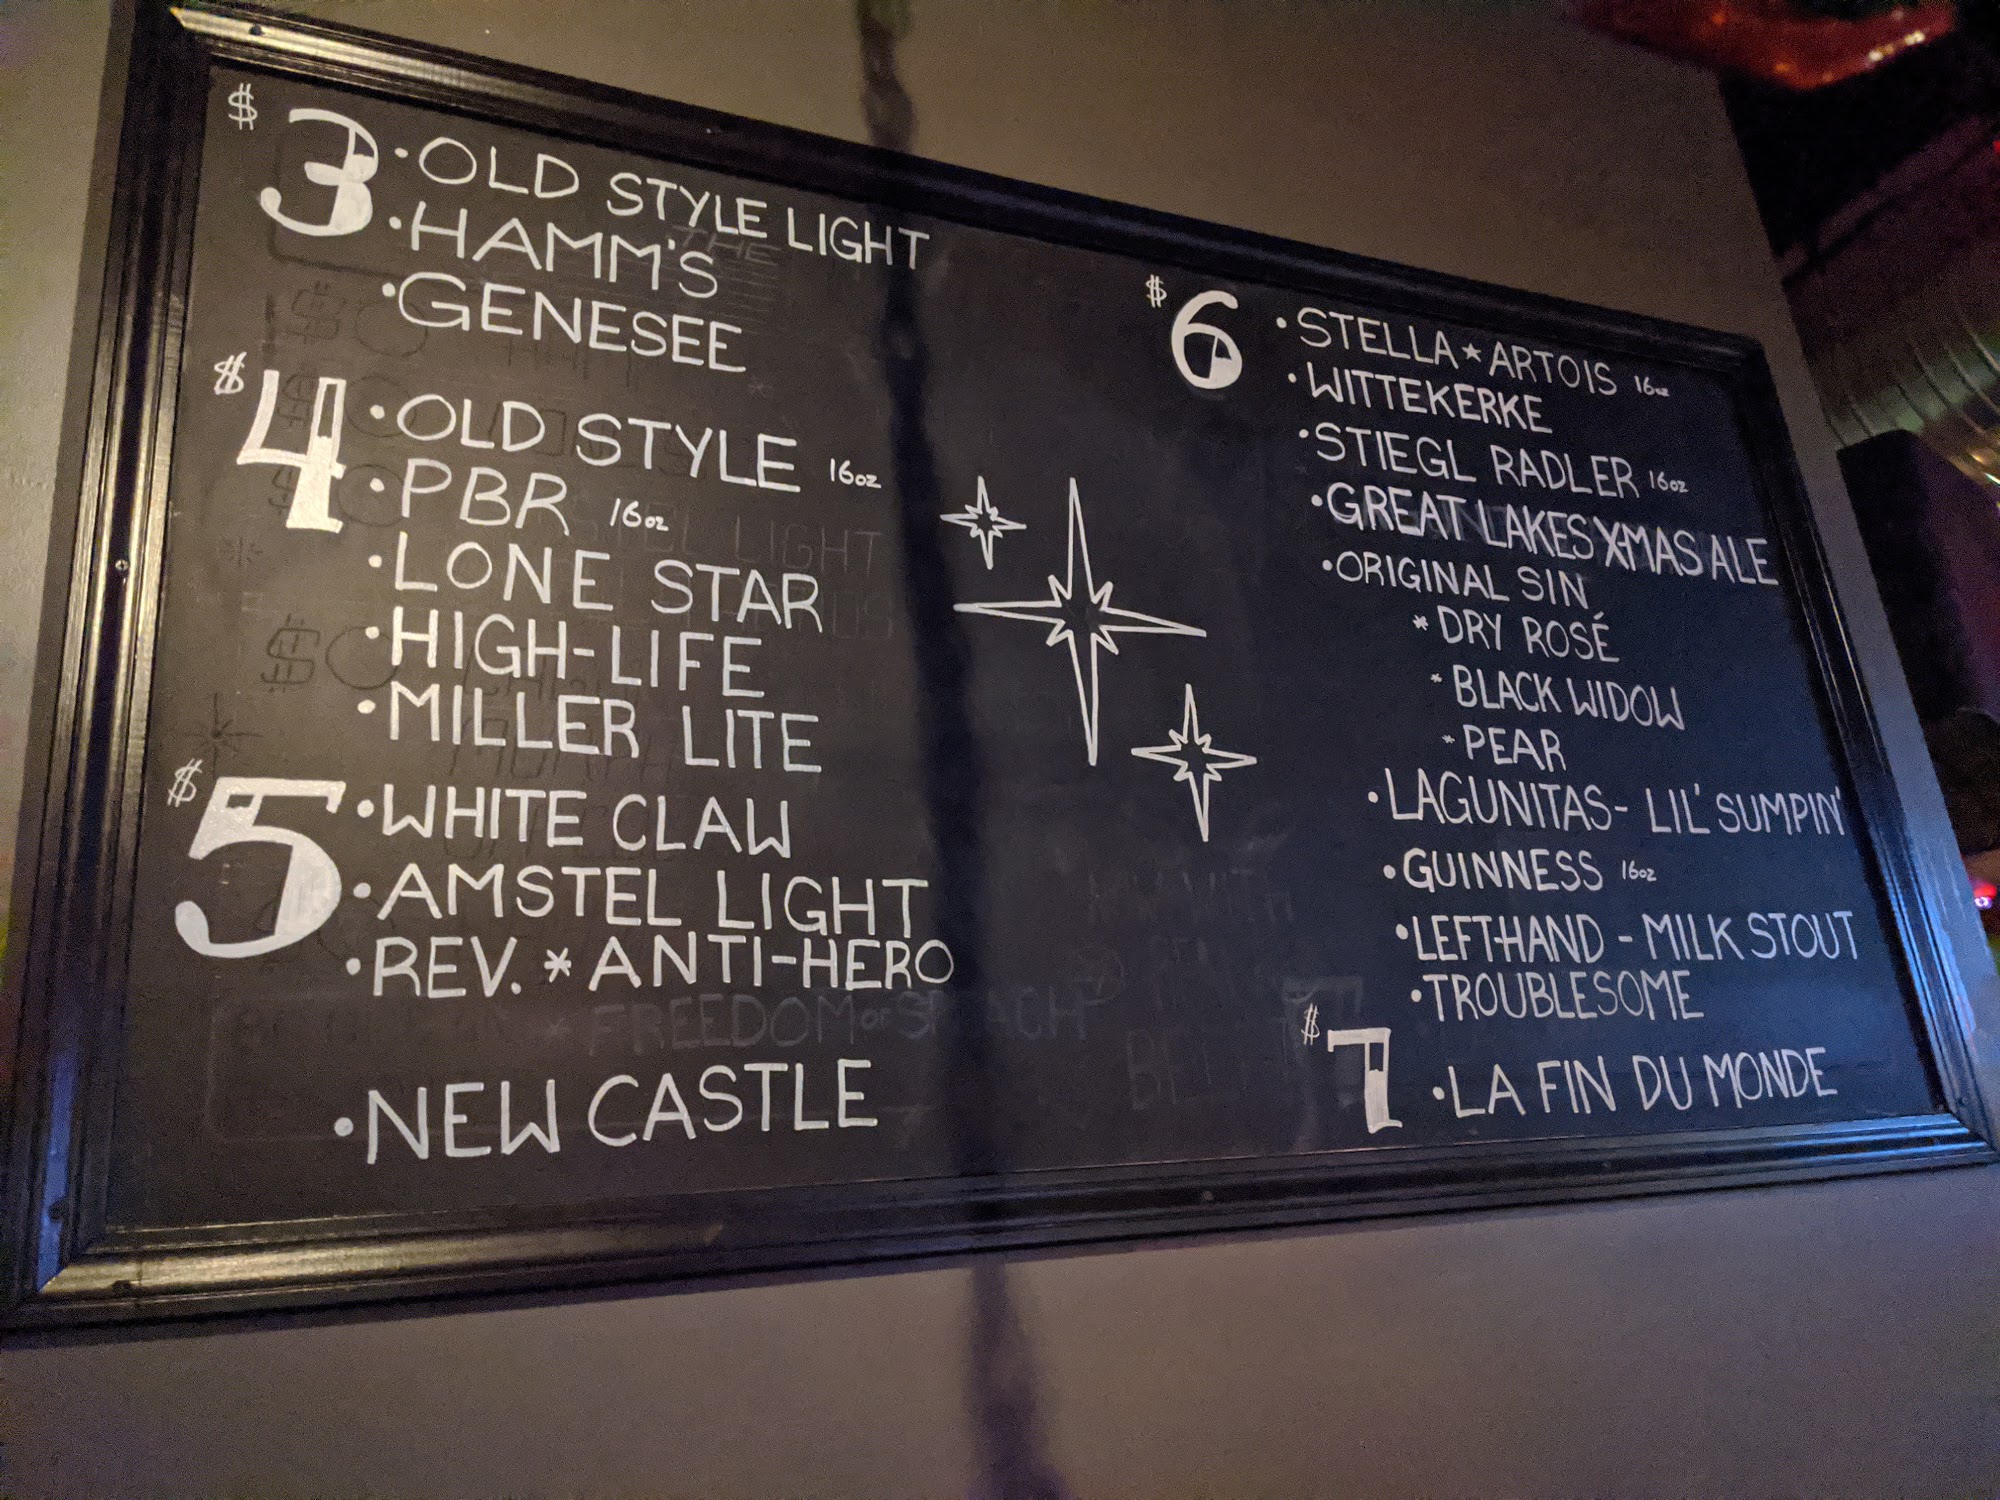 $3 • OLD STYLE LIGHT
• HAMM'S
• GENESEE
$4 • OLD STYLE 16oz
• PBR 16oz
• LONE STAR
• HIGH-LIFE
• MILLER LITE
$5 • WHITE CLAW
• AMSTEL LIGHT
• REV. * ANTI-HERO
* FREEDOM OF SPEACH
• NEW CASTLE
$6 • STELLA ★ ARTOIS 16oz
• WITTEKERKE
• STIEGL RADLER 16oz
• GREAT LAKES X-MAS ALE
• ORIGINAL SIN
* DRY ROSÉ
* BLACK WIDOW
* PEAR
• LAGUNITAS - LIL' SUMPIN'
• GUINNESS 16oz
• LEFT-HAND - MILK STOUT
• TROUBLESOME
$7 • LA FIN DU MONDE